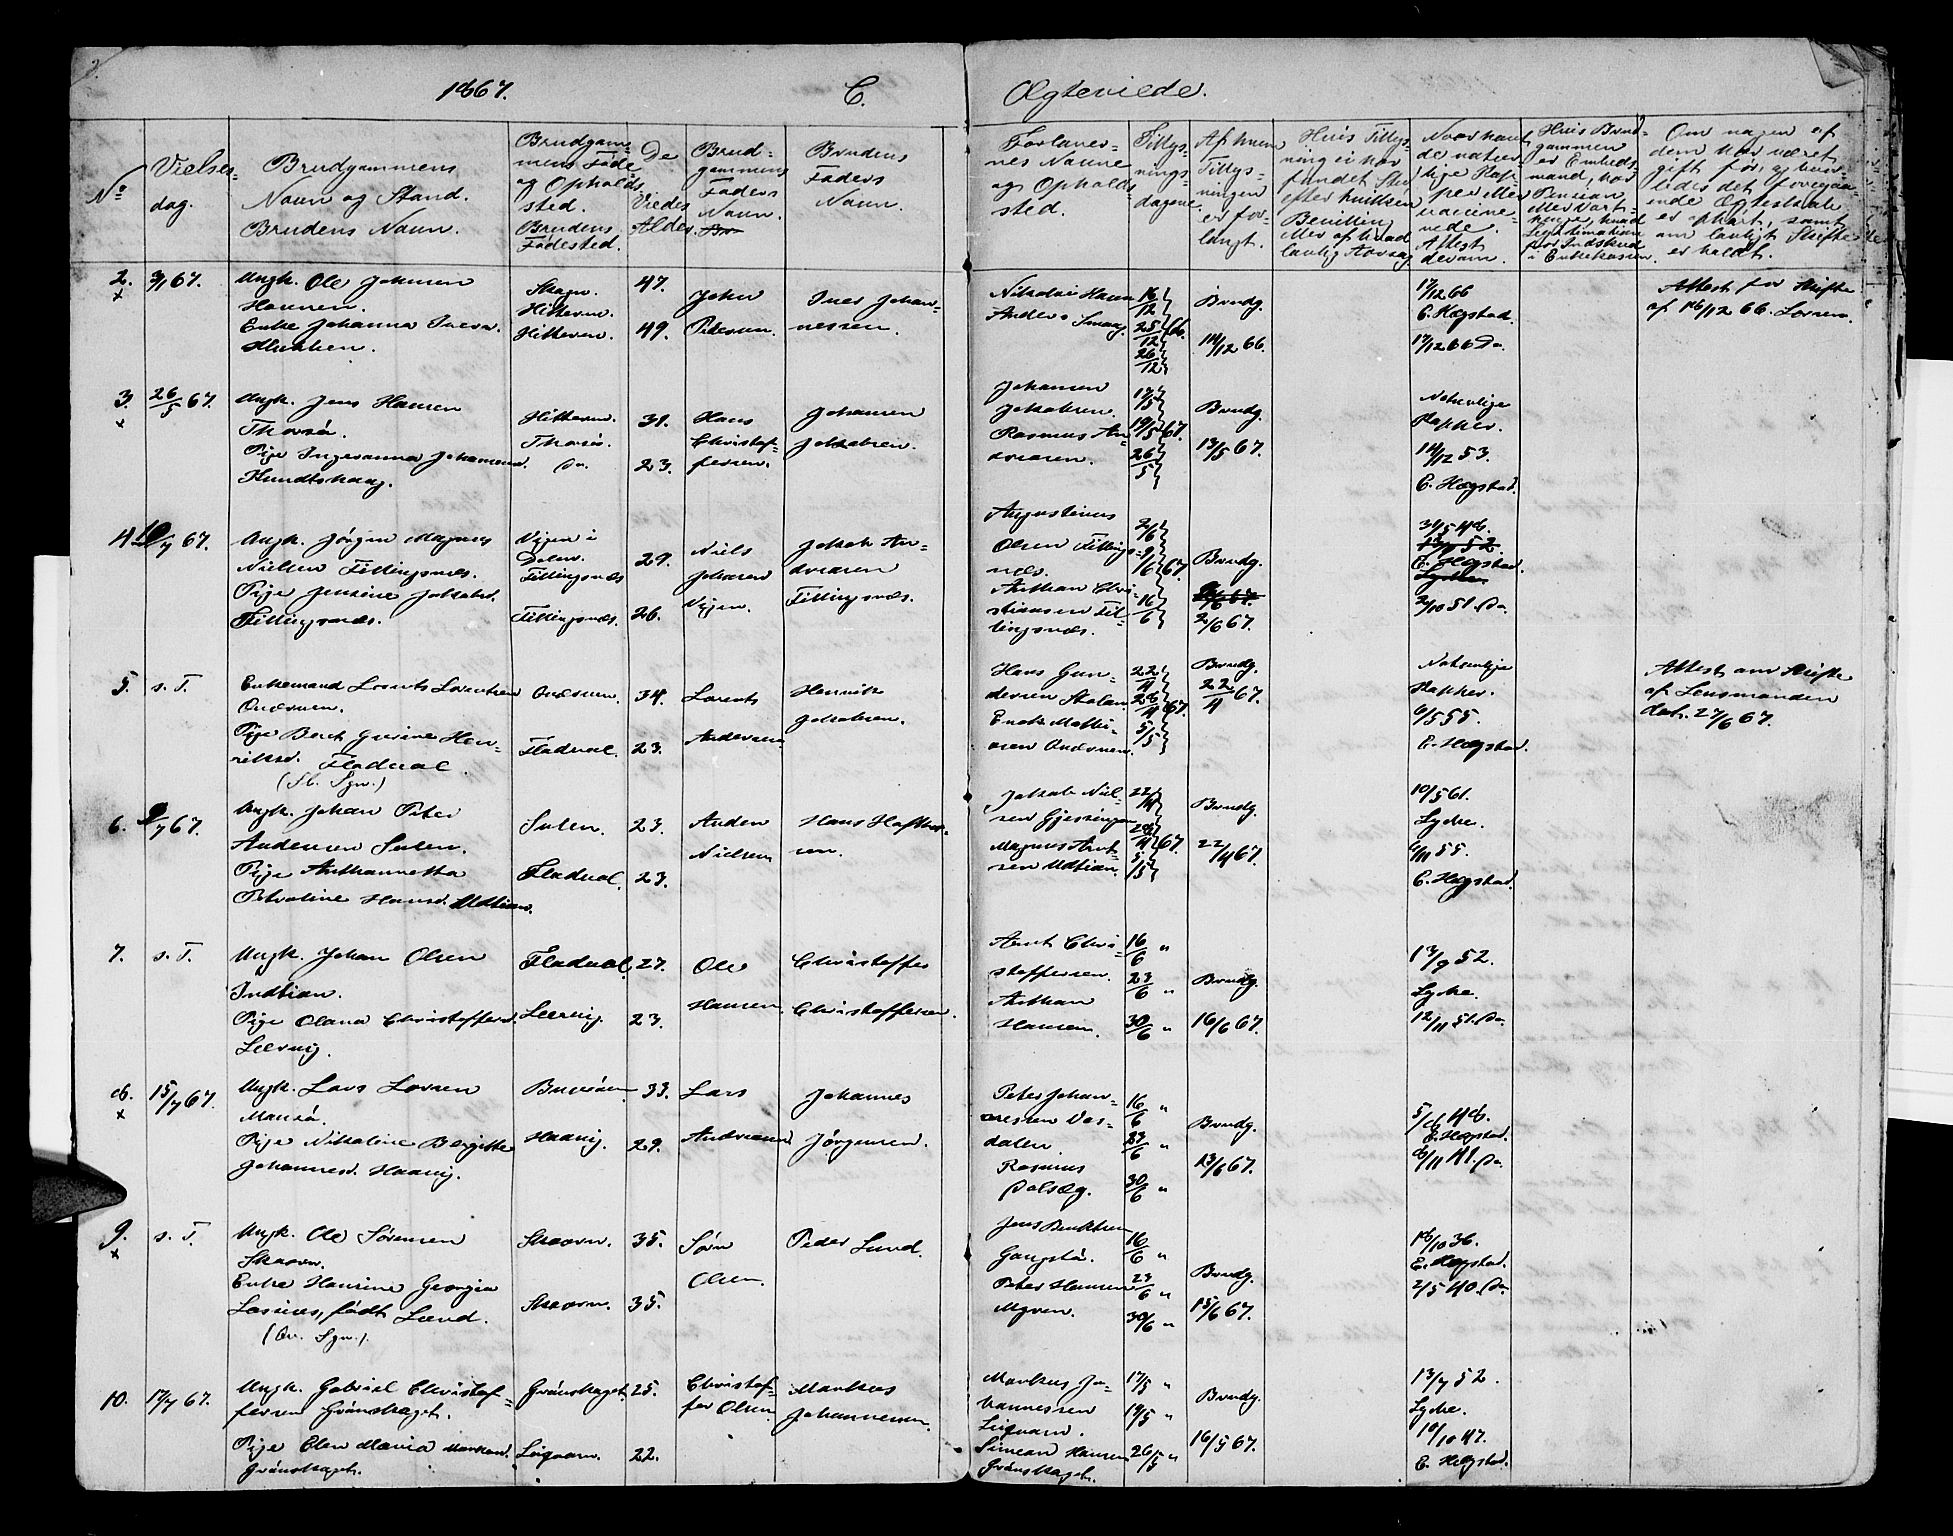 1867.
C.
Ægteviede.
No
Vielses-
dag.
Brudgommens
Navn og Stand.
Brudens Navn.
Brudgom-
mens Føde
og Opholds
sted.
Brudens
Fødested.
De
Viedes
Alder.
Brud-
gommens
Faders
Navn.
Brudens
Faders
Navn.
Forlover-
nes Navne
og Opholds
sted.
Tillys-
nings-
dagene.
Af hvem
Tillys-
ningen
er for-
langt.
Hvis Tillys-
ning ei har
fundet Sted
efter hvilken
Bevilling
eller af hvad
lovlig Aarsag.
Naar havt
de naturlige Kop-
per eller
vaccine-
rede.
Attest
derom.
Hvis Brud-
gommen
er Embeds
mand, har
Pension
Legitimation
for Indskud
i Enkekassen.
Om nogen af
dem har været
gift før, og hvor-
ledes det foregaa-
ende Ægteskab
er ophørt, samt
om lovligt Skifte
er holdt.
2.
3/1 67.
Ungk. Ole Johnsen
Hounen.
Enke Johanna Iversd.
Hitteren.
Hitteren.
47.
49.
John
Petersen.
Iver Johan-
nessen.
Nikolai
Anders
16/12
25/12 66.
26/12
Brudg.
14/12 66.
17/12 66
E. Høgstad.
17/12 66 Do.
Attest for Skifte
af 18/12 66.
3.
26/5 67.
Ungk. Jens Hansen
Thorsø.
Pige Ingeranna Johansend.
Hitteren.
Thorsø.
Do.
31.
23.
Hans
Christof-
fersen.
Johansen
Jakobsen.
Johansen
Jakobsen.
Rasmus An-
dreasen.
17/5
19/5 67.
26/5
Brudg.
13/5 67.
Naturlige
Kopper.
14/12 53.
E. Høgstad.
4.
10/7 67.
Ungk. Jørgen Magnus
Nielsen Fillingsnæs.
Pige Jensine Jakobsd.
Fillingsnæs.
Vejen i
Fillingsnæs
Fillingsnæs.
29.
26.
Niels
Johnsen
Vejen.
Jakob An-
dreasen
Fillingsnæs.
Augustinus
Olsen Fillings-
næs.
Anthon Chri-
stiansen Fil-
lingsnæs.
2/6
9/6 67.
16/6
Brudg.
2/6 67.
31/5 48.
E. Høgstad.
2/10 51. Do.
5.
s. T.
Enkemand Lorents Lorentsen
Ondsnen.
Pige Berit Gurine Hen-
riksd. Fladval.
Fladval.
34.
23.
Lorents
Andersen
Henrik
Jakobsen.
Hans Gun-
dersen
22/4
28/4 67.
5/5
Brudg.
22/4 67.
Naturlige
Kopper.
6/5 55.
E. Høgstad.
Attest om Skifte
af Lensmanden
dat. 27/6 67.
6.
9/7 67.
Ungk. Johan Peter
Andersen Sulen.
Pige Anthonetta
Petroline Hansd.
Sulen.
Fladval.
23.
23.
Anders
Nielsen
Hans
Jakob Niel-
sen
Magnus Arnt-
sen
22/4
28/4 67.
5/5
Brudg.
22/4 67.
10/5 61.
Lyche.
6/11 55.
E. Høgstad.
7.
s. T.
Ungk. Johan Olsen
Indtian.
Pige Olana Christoffersd.
Leervig.
Fladval.
Leervig.
27.
23.
Ole
Hansen
Christoffer
Christoffersen.
Arnt Chri-
stoffersen.
Anthon
Hansen.
16/6 "
23/6 "
30/6 "
Brudg.
16/6 67.
13/9 52.
Lyche.
12/11 51. Do.
8.
15/7 67.
Ungk. Lars Larsen
Mausø.
Pige Nikoline Bergitte
Johannesd. Haavig.
Haavig.
33.
29.
Lars
Andreasen
Johannes
Jørgensen.
Peter Johan-
nessen
dalen.
Rasmus
16/6 "
23/6 "
30/6 "
Brudg.
13/6 67.
5/6 48.
E. Høgstad.
8/11 41. Do.
9.
s. T.
Ungk. Ole Sørensen
Skaarn.
Enke Hansine Georgia
født Lund.
Skaarn.
Skaarn.
35.
35.
Søren
Olsen.
Peder Lund.
Jens
Peter Hansen
16/6 "
23/6 "
30/6 "
Brudg.
15/6 67.
18/10 36.
E. Høgstad.
2/5 40. Do.
10.
17/7 67.
Ungk. Gabriel Christof-
fersen Grønskaget.
Pige Elen Maria Markusd.
Grønskaget.
Grønskaget.
25.
22.
Christof-
fer Olsen.
Markus
Johannesen.
Markus Jo-
hannessen
Simeon Hansen
Grønskaget.
17/5 "
19/5 "
26/5 "
Brudg.
16/5 67.
13/7 52.
Lyche.
10/10 47.
E. Høgstad.